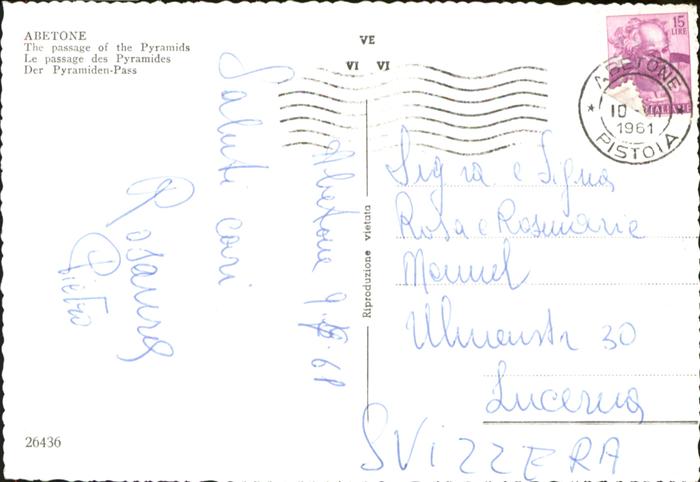 ABETONE
The passage of the Pyramids
Le passage des Pyramides
Der Pyramiden-Pass
VE
VI VI
15
LIRE
ABETONE
10
1961
PISTOIA
Saluti cari
Rosanna
Pietro
Abetone 9. 61
Riproduzione vietata
Sig.ra e Sig.na
Rosa e Rosmarie
30
Lucerna
SVIZZERA
26436